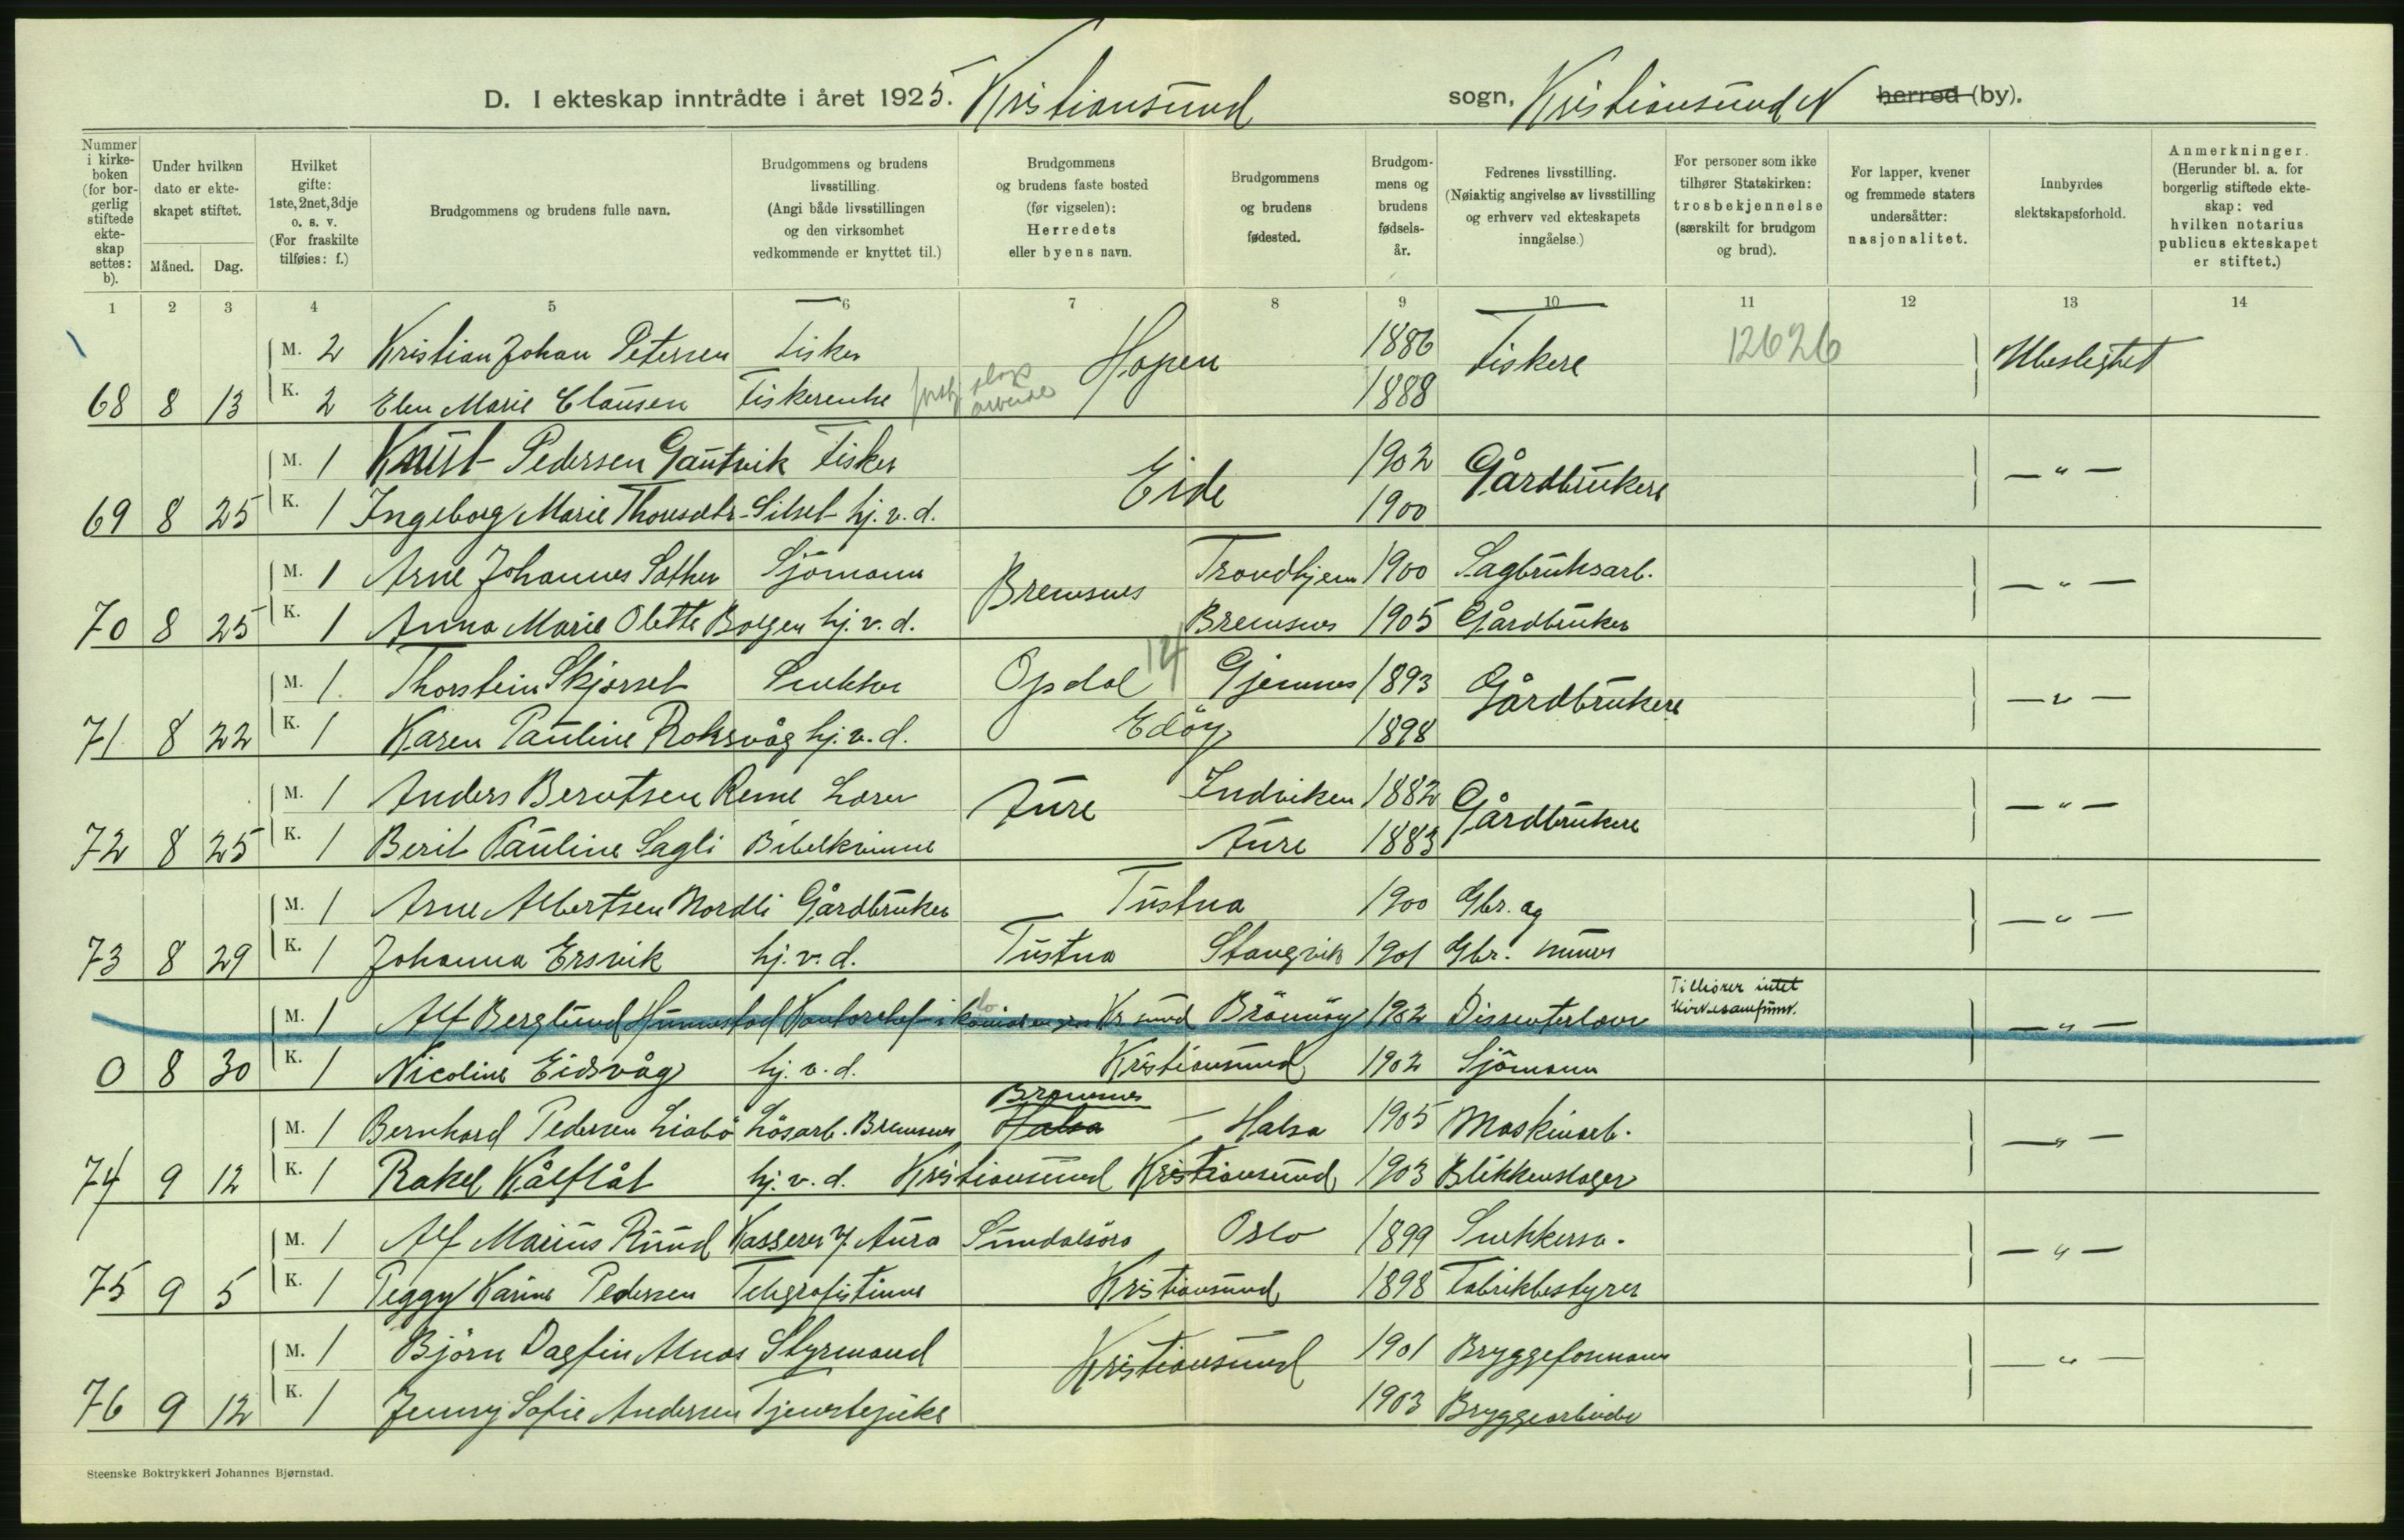 D. I ekteskap inntrådte i året 1925. Kristiansund sogn, Kristiansund N herred (by).
Nummer i kirkeboken (for borgerlig stiftede ekteskap settes: b). Under hvilken dato er ekteskapet stiftet. Måned. Dag. Hvilket gifte: 1ste, 2net, 3dje o. s. v. (For fraskilte tilføies: f.) Brudgommens og brudens fulle navn. Brudgommens og brudens livsstilling. (Angi både livsstillingen og den virksomhet vedkommende er knyttet til.) Brudgommens og brudens faste bosted (før vigselen): Herredets eller byens navn. Brudgommens og brudens fødested. Brudgommens og brudens fødselsår. Fedrenes livsstilling. (Nøiaktig angivelse av livsstilling og erhverv ved ekteskapets inngåelse.) For personer som ikke tilhører Statskirken: trosbekjennelse (særskilt for brudgom og brud). For lapper, kvener og fremmede staters undersåtter: nasjonalitet. Innbyrdes slektskapsforhold. Anmerkninger. (Herunder bl. a. for borgerlig stiftede ekteskap: ved hvilken notarius publicus ekteskapet er stiftet.)
1 2 3 4 5 6 7 8 9 10 11 12 13 14
M. 2 Kristian Johan Petersen Fisker Hopen 1886 Fiskere 12626 Ubeslegtet
68 8 13 K. 2 Elen Marie Clausen Fiskerenke 1888
M. 1 Knut Pedersen Gautvik Fisker Eide 1902 Gårdbrukere — " —
69 8 25 K. 1 Ingeborg Marie Thoresdtr. Silset hj. v. d. 1900
M. 1 Arne Johannes Sather Sjömann Bremsnes Trondhjem 1900 Sagbruksarb. — " —
70 8 25 K. 1 Anna Marie Olette Bolgen hj. v. d. Bremsnes 1905 Gårdbruker
M. 1. Thorstein Skjerset Snekker Opdal 14 Gjemnes 1893 Gårdbrukere — " —
71 8 22 K. 1 Karen Pauline Roksvåg hj. v. d. Edöy 1898
M. 1 Anders Berntsen Reme Lærer Aure Indviken 1882 Gårdbrukere — " —
72 8 25 K. 1 Berit Pauline Sagli Bibelkvinne Aure 1883
M. 1 Arne Albertsen Nordli Gårdbruker Tustna 1900 Gbr. og — " —
73 8 29 K. 1 Johanna Ersvik hj. v. d. Tustna Stangvik 1901 Gbr. murer
M. 1 Alf Berglund Hunnestad Kontorchef i Kr sund Brönnöy 1902 Dissenterlærer Tilhører intet kirkesamfund. — " —
0 8 30 K. 1 Nicoline Eidsvåg hj. v. d. Kristiansund 1902 Sjömann
M. 1 Bernhard Pedersen Liabö Lösarb. Bremsnes Halsa Bremsnes — Halsa 1905 Maskinarb. — " —
74 9 12 K. 1 Rakel Kålflåt hj. v. d. Kristiansund Kristiansund 1903 Blikkenslager
M. 1 Alf Marius Ruud Kasserer v. Aura Sundalsöra Oslo 1899 Snekkersv. — " —
75 9 5 K. 1 Peggy Karine Pedersen Telegrafistinne Kristiansund 1898 Fabrikbestyrer
M. 1 Björn Dagfin Alnæs Styrmand Kristiansund 1901 Bryggeformann — " —
76 9 12 K. 1 Jenny Sofie Andersen Tjenestepike 1903 Bryggearbeider
Steenske Boktrykkeri Johannes Bjørnstad.